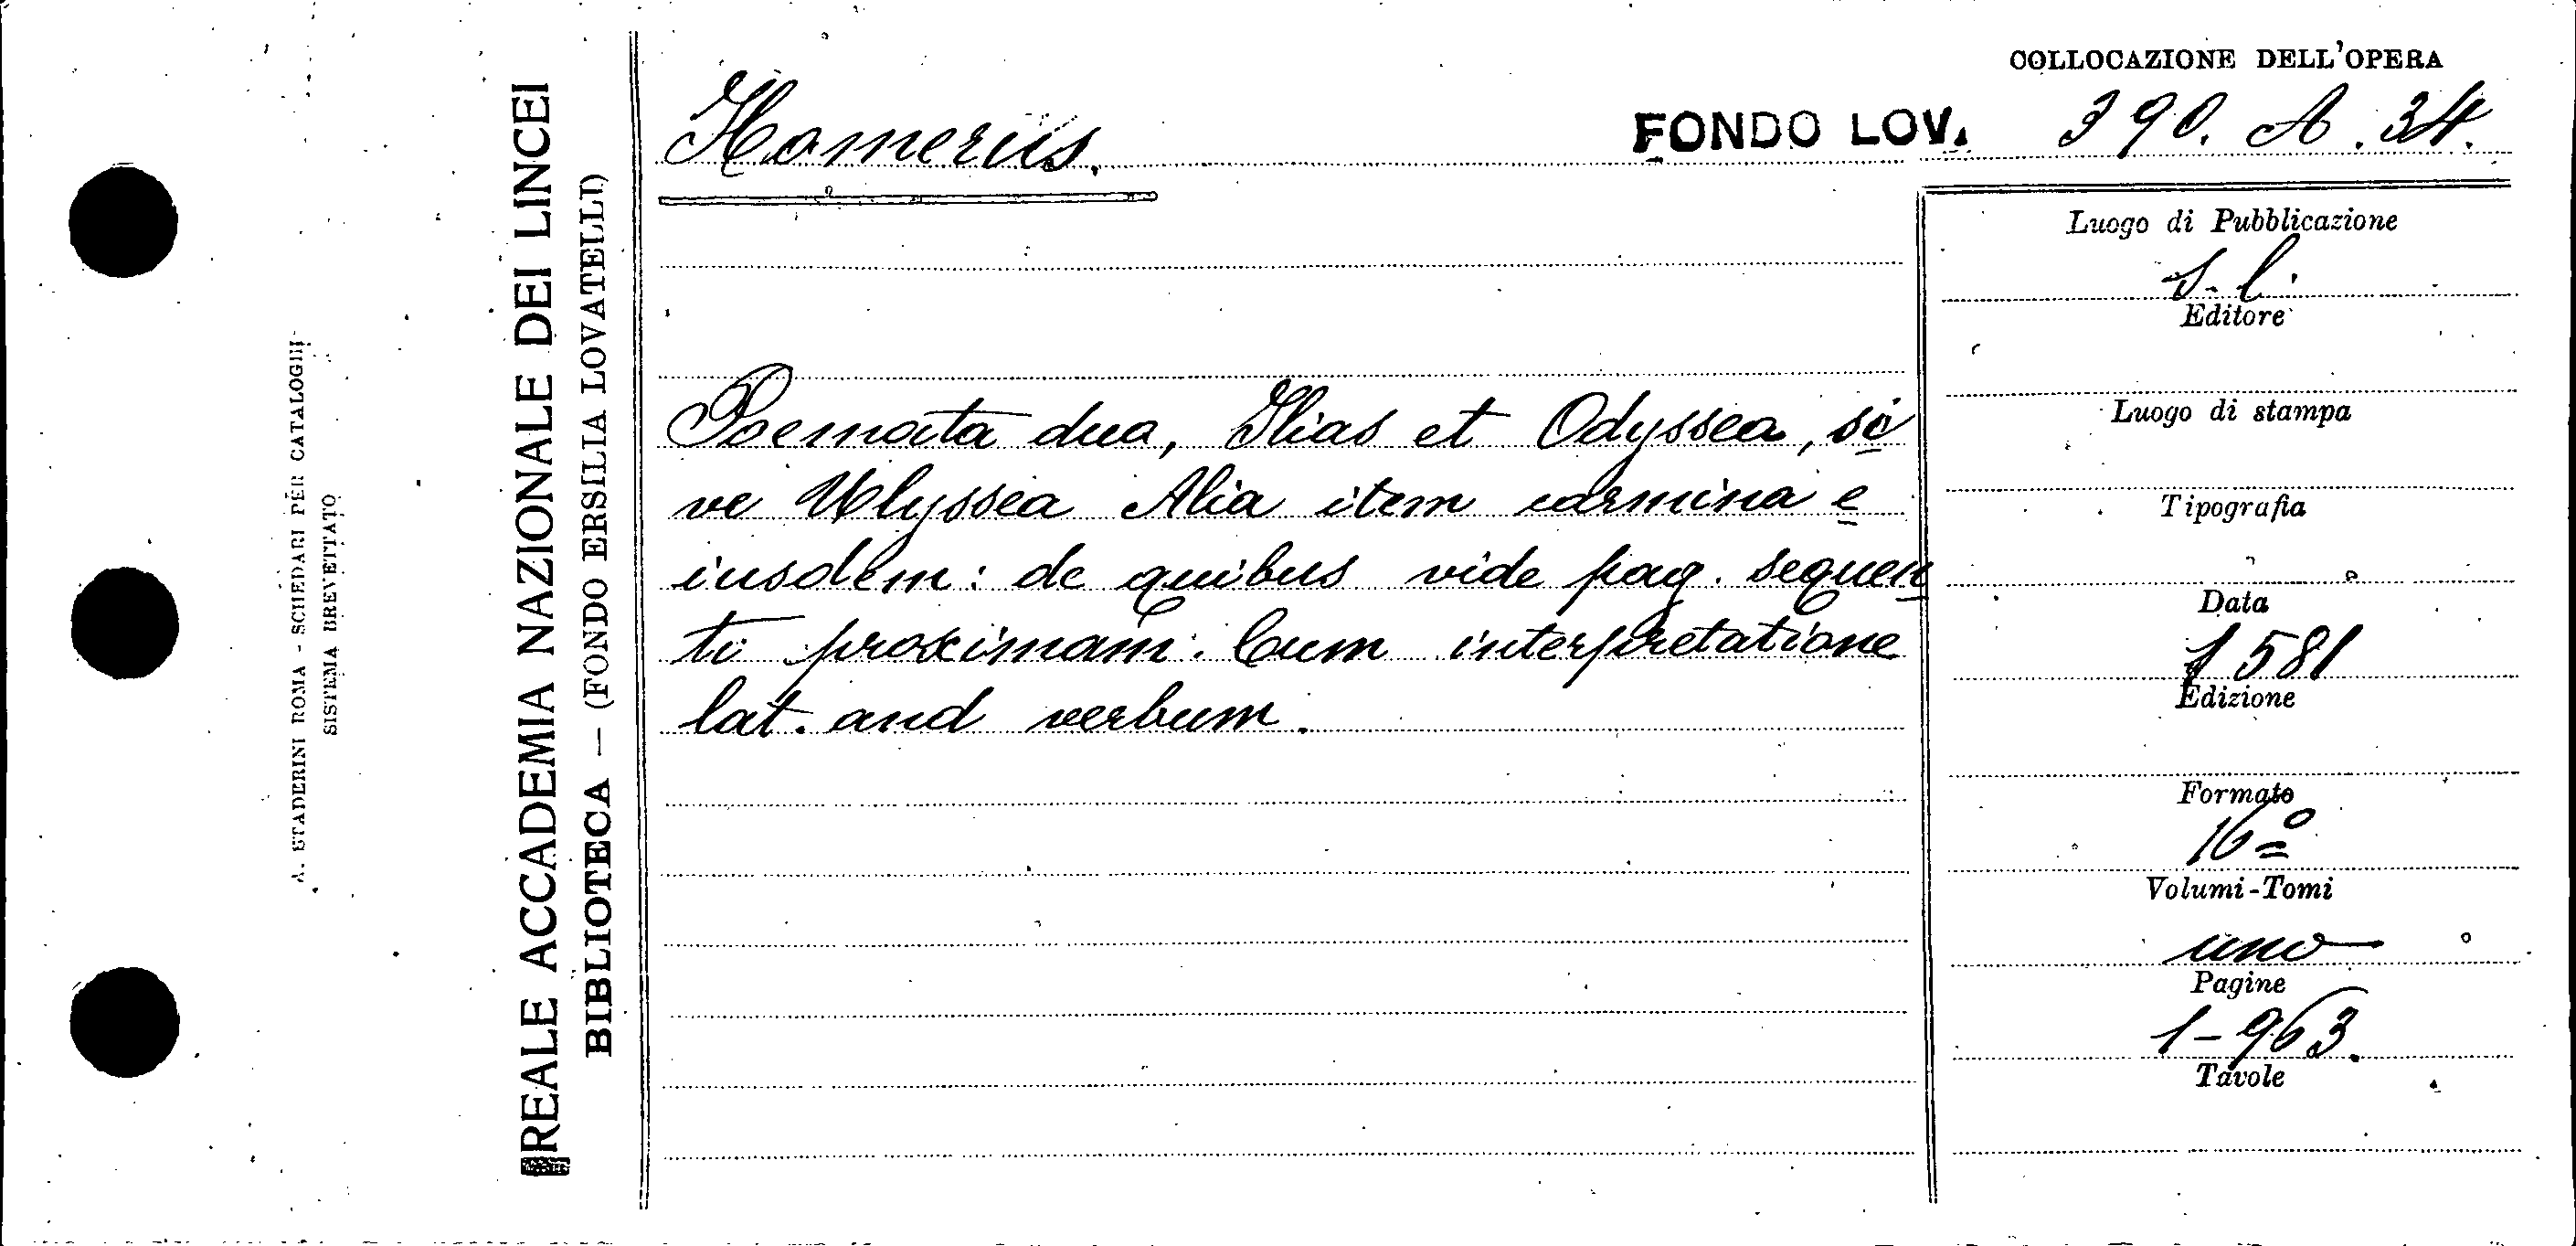 COLLOCAZIONE DELL'OPERA
Homerus.
FONDO LOV. 390. A. 34.
Poemata dua, Ilias et Odyssea, si
ve Ulyssea Alia item carmina e
iusdem: de quibus vide pag. sequen
ti proximam. Cum interpretatione
lat. and verbum.
Luogo di Pubblicazione
S. l.
Editore
Luogo di stampa
Tipografia
Data
1581
Edizione
Formato
16º
Volumi-Tomi
uno
Pagine
1-963.
Tavole
REALE ACCADEMIA NAZIONALE DEI LINCEI
BIBLIOTECA — (FONDO ERSILIA LOVATELLI)
A. STADERINI ROMA - SCHEDARI PER CATALOGHI
SISTEMA BREVETTATO